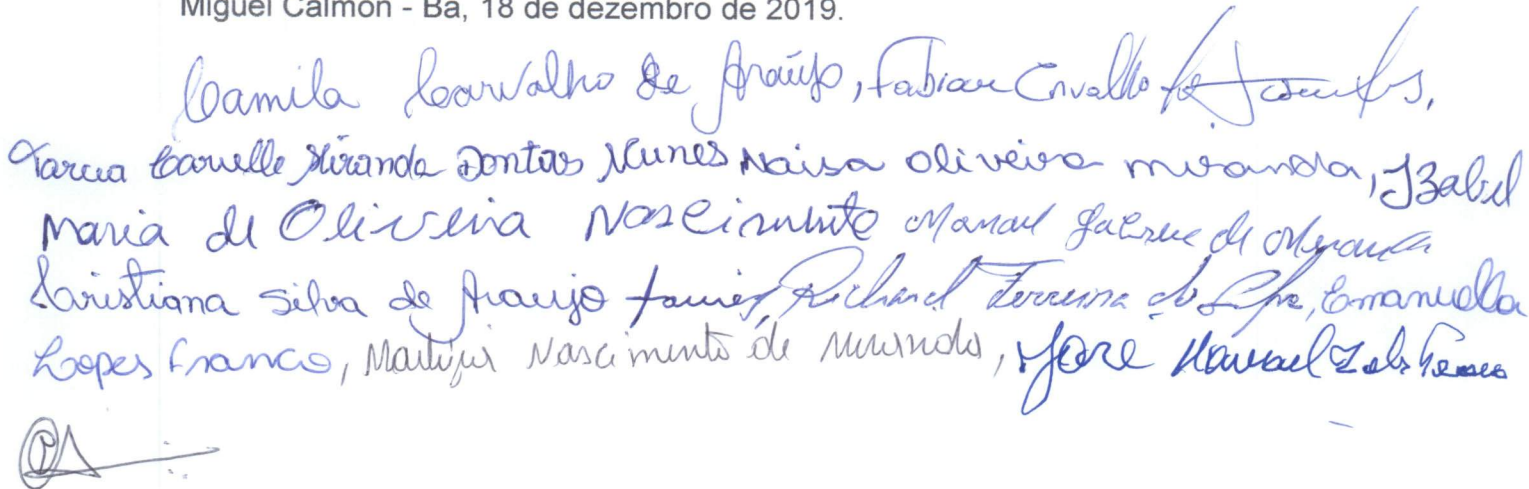 Miguel Calmon - Ba, 18 de dezembro de 2019.
Camila Carvalho de Araújo, Fabian Carvalho
Miranda Dantas Nunes Naisa Oliveira miranda, Izabel
Maria de Oliveira Nascimento Manoel de Miranda
Cristiana Silva de Araujo Richard Ferreira da Silva, Emanuella
Lopes Franco, Nascimento de Miranda, José Manoel